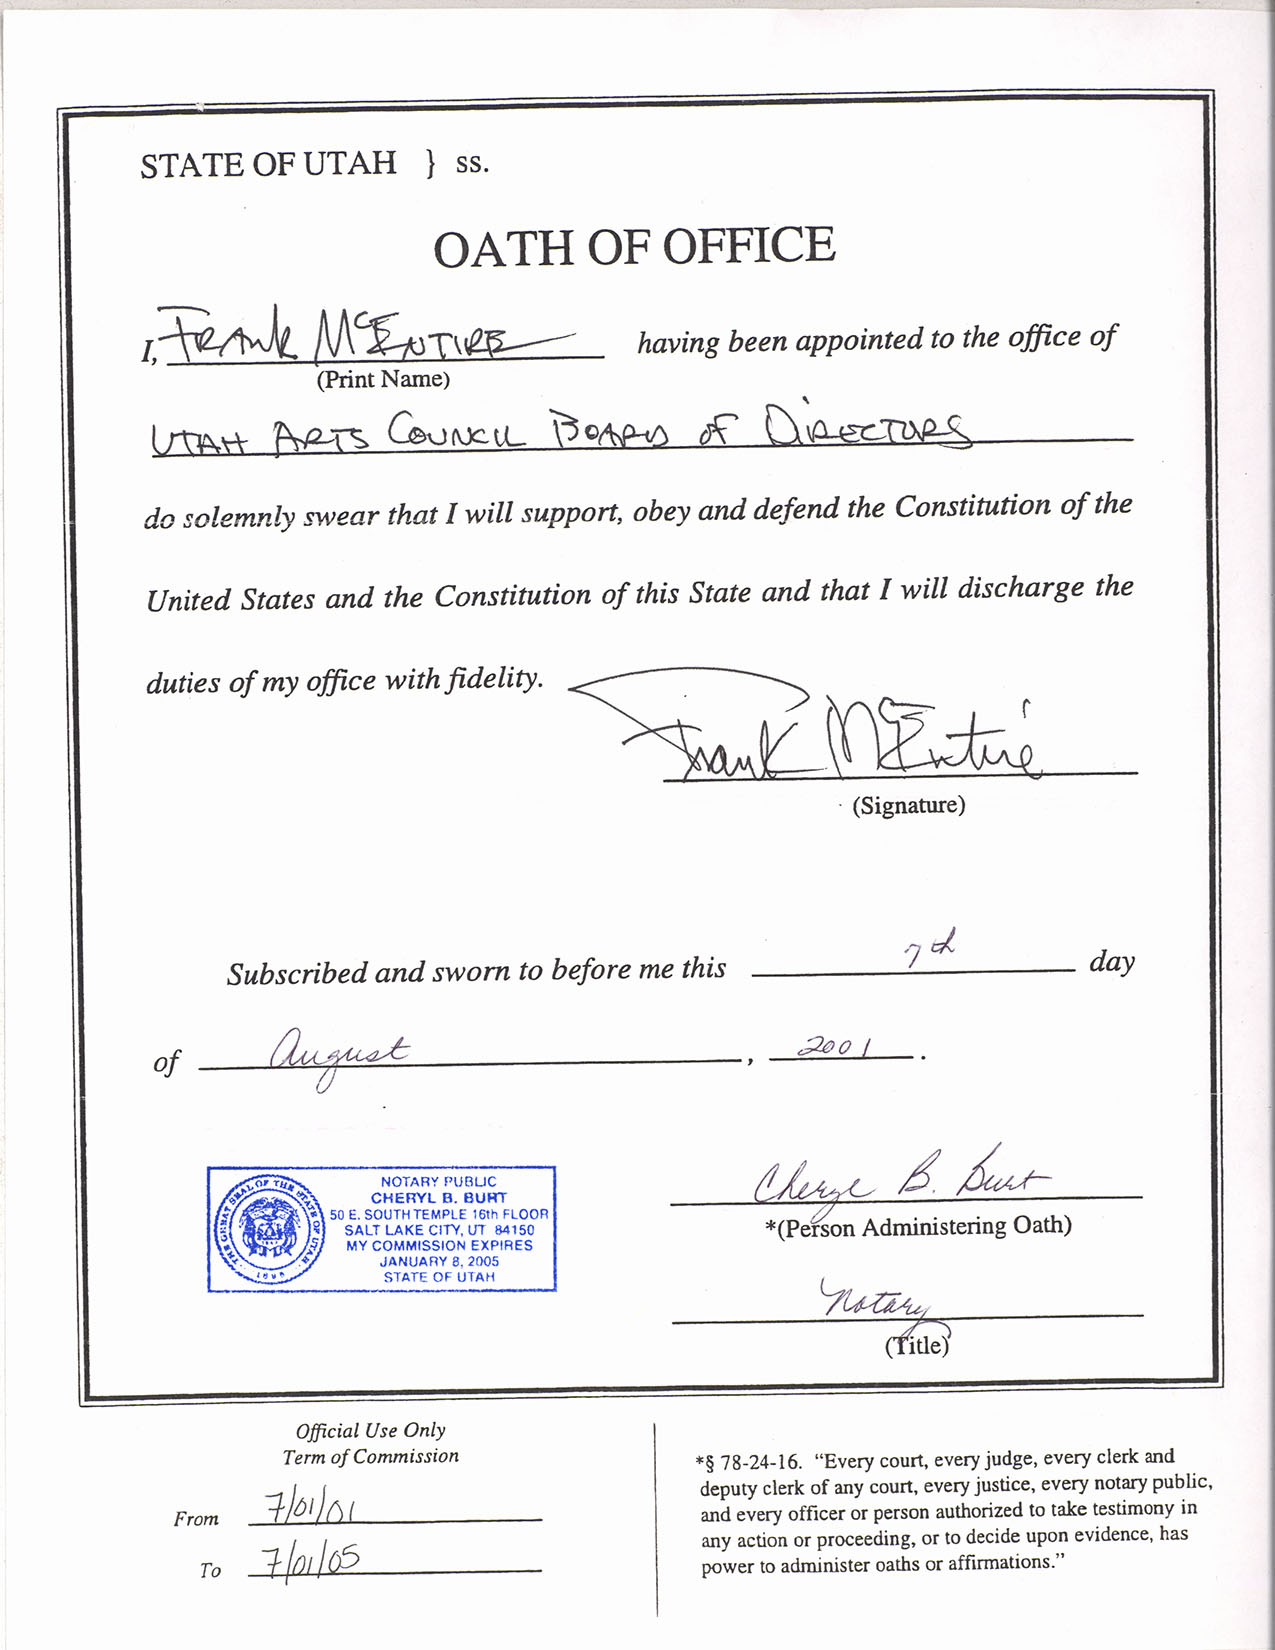 STATE OF UTAH } ss.
OATH OF OFFICE
I, FRANK McENTIRE having been appointed to the office of
(Print Name)
UTAH ARTS COUNCIL BOARD OF DIRECTORS
do solemnly swear that I will support, obey and defend the Constitution of the
United States and the Constitution of this State and that I will discharge the
duties of my office with fidelity.
Frank McEntire
(Signature)
Subscribed and sworn to before me this 7th day
of August, 2001.
THE GREAT SEAL OF THE STATE OF UTAH
1896
NOTARY PUBLIC
CHERYL B. BURT
50 E. SOUTH TEMPLE 16th FLOOR
SALT LAKE CITY, UT 84150
MY COMMISSION EXPIRES
JANUARY 8, 2005
STATE OF UTAH
Cheryl B. Burt
*(Person Administering Oath)
Notary
(Title)
Official Use Only
Term of Commission
From 7/01/01
To 7/01/05
*§ 78-24-16. “Every court, every judge, every clerk and
deputy clerk of any court, every justice, every notary public,
and every officer or person authorized to take testimony in
any action or proceeding, or to decide upon evidence, has
power to administer oaths or affirmations.”